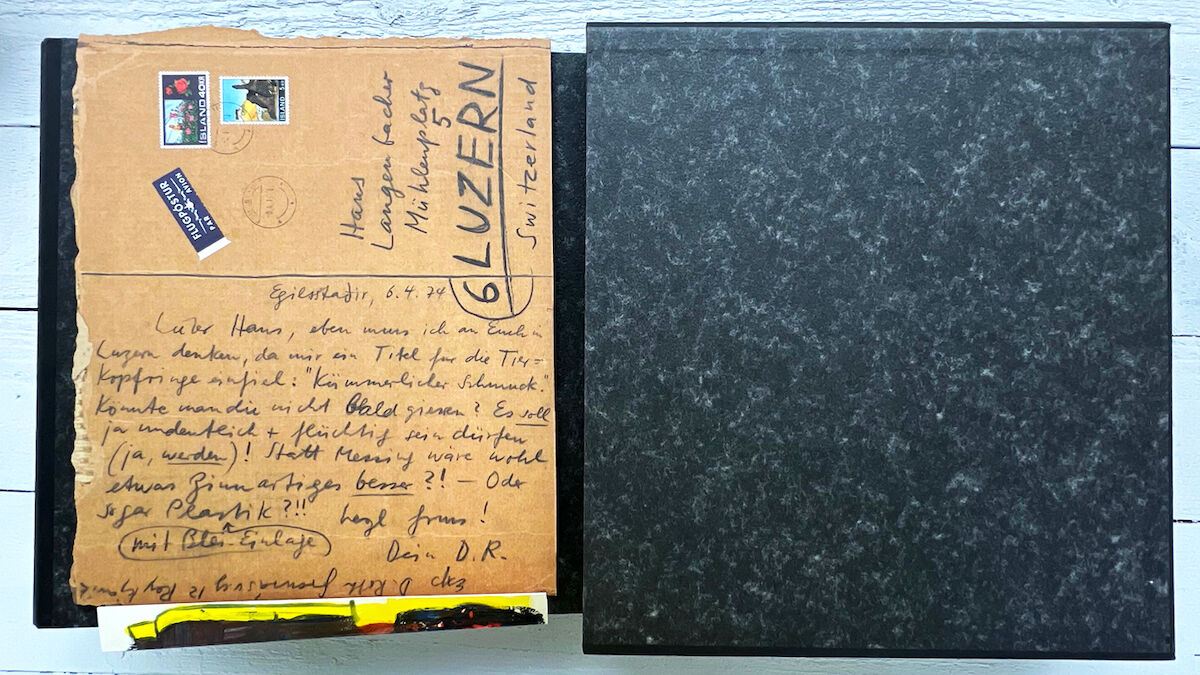 ÍSLAND 40KR
ÍSLAND 5
FLUGPÓSTUR
PAR AVION
Hans
Langenbacher
Mühlenplatz
5
6 LUZERN
Switzerland
Egilsstaðir, 6.4.74
Lieber Hans, eben muss ich an Euch in
Luzern denken, da mir ein Titel für die Tier-
Kopfringe einfiel: "Kümmerlicher Schmuck."
Könnte man die nicht bald giessen? Es soll
ja undeutlich + flüchtig sein dürfen
(ja, werden)! Statt Messing wäre wohl
etwas Zinnartiges besser?! – Oder
sogar Plastik?!!
mit Blei-Einlage
herzl grüss!
Dein D.R.
Exp D. Roth 12